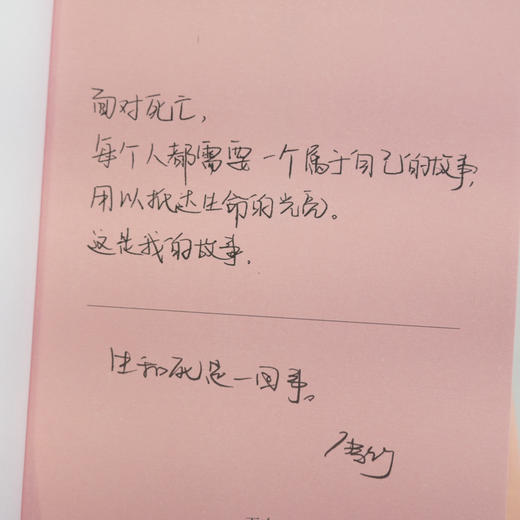 面对死亡,
每个人都需要一个属于自己的故事,
用以抵达生命的光亮。
这是我的故事.
生和死是一回事。